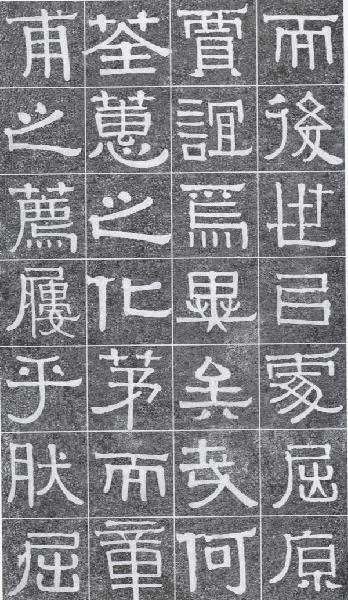 而後世㠯屈原
賈誼爲異矣何
荃蕙之化茅而章
甫之薦屨乎肰屈